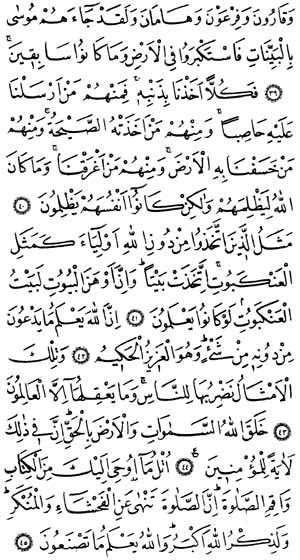 وَقَارُونَ وَفِرْعَوْنَ وَهَامَانَ وَلَقَدْ جَاءَهُمْ مُوسَى
بِالْبَيِّنَاتِ فَاسْتَكْبَرُوا فِي الْأَرْضِ وَمَا كَانُوا سَابِقِينَ
﴿٣٩﴾ فَكُلًّا أَخَذْنَا بِذَنْبِهِ فَمِنْهُمْ مَنْ أَرْسَلْنَا
عَلَيْهِ حَاصِبًا وَمِنْهُمْ مَنْ أَخَذَتْهُ الصَّيْحَةُ وَمِنْهُمْ
مَنْ خَسَفْنَا بِهِ الْأَرْضَ وَمِنْهُمْ مَنْ أَغْرَقْنَا وَمَا كَانَ
اللهُ لِيَظْلِمَهُمْ وَلَكِنْ كَانُوا أَنْفُسَهُمْ يَظْلِمُونَ ﴿٤٠﴾
مَثَلُ الَّذِينَ اتَّخَذُوا مِنْ دُونِ اللهِ أَوْلِيَاءَ كَمَثَلِ
الْعَنْكَبُوتِ اتَّخَذَتْ بَيْتًا وَإِنَّ أَوْهَنَ الْبُيُوتِ لَبَيْتُ
الْعَنْكَبُوتِ لَوْ كَانُوا يَعْلَمُونَ ﴿٤١﴾ إِنَّ اللهَ يَعْلَمُ مَا يَدْعُونَ
مِنْ دُونِهِ مِنْ شَيْءٍ وَهُوَ الْعَزِيزُ الْحَكِيمُ ﴿٤٢﴾ وَتِلْكَ
الْأَمْثَالُ نَضْرِبُهَا لِلنَّاسِ وَمَا يَعْقِلُهَا إِلَّا الْعَالِمُونَ
﴿٤٣﴾ خَلَقَ اللهُ السَّمَوَاتِ وَالْأَرْضَ بِالْحَقِّ إِنَّ فِي ذَلِكَ
لَآيَةً لِلْمُؤْمِنِينَ ﴿٤٤﴾ اُتْلُ مَا أُوحِيَ إِلَيْكَ مِنَ الْكِتَابِ
وَأَقِمِ الصَّلَوةَ إِنَّ الصَّلَوةَ تَنْهَى عَنِ الْفَحْشَاءِ وَالْمُنْكَرِ
وَلَذِكْرُ اللهِ أَكْبَرُ وَاللهُ يَعْلَمُ مَا تَصْنَعُونَ ﴿٤٥﴾